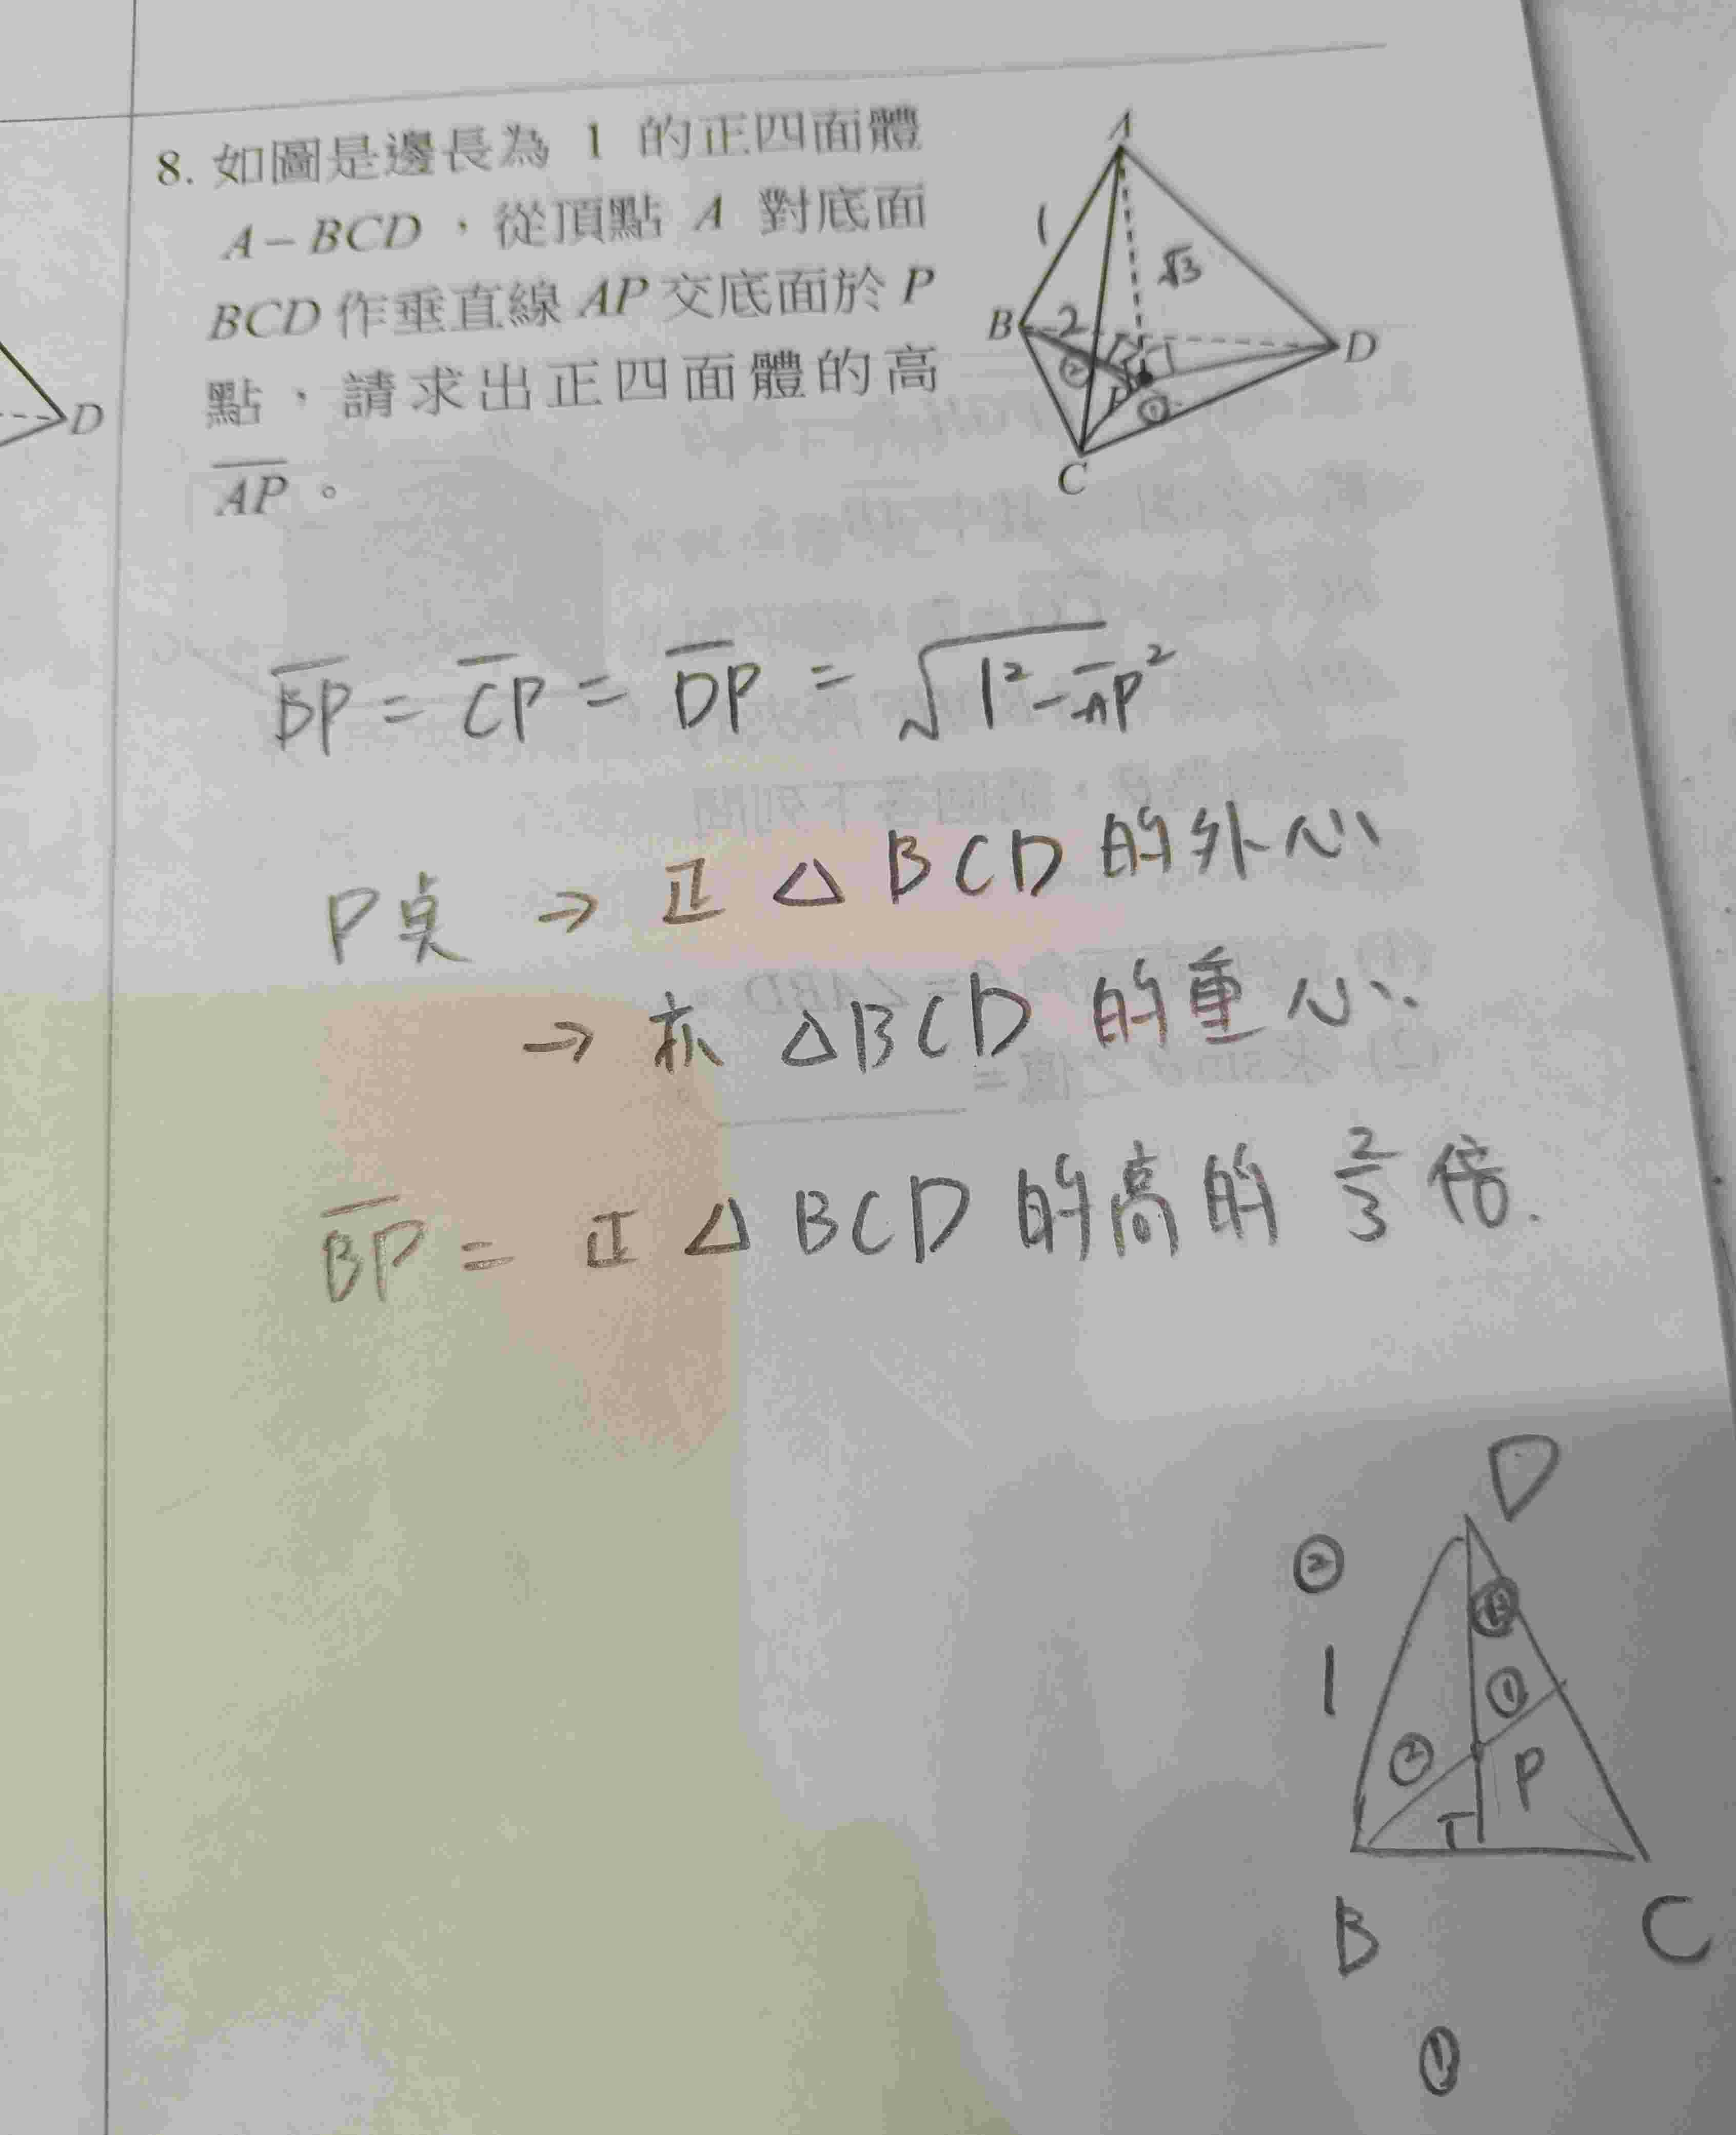 8. 如圖是邊長為 1 的正四面體
A－BCD，從頂點 A 對底面
BCD 作垂直線 AP 交底面於 P
點，請求出正四面體的高
AP。
A
1
√3
B
2
D
②
P
①
C
D
BP = CP = DP = √1²-AP²
P点 → 正△BCD 的外心
→ 亦 △BCD 的重心.
BP = 正△BCD 的高的 2/3 倍.
D
②
1
①
②
P
B
C
①